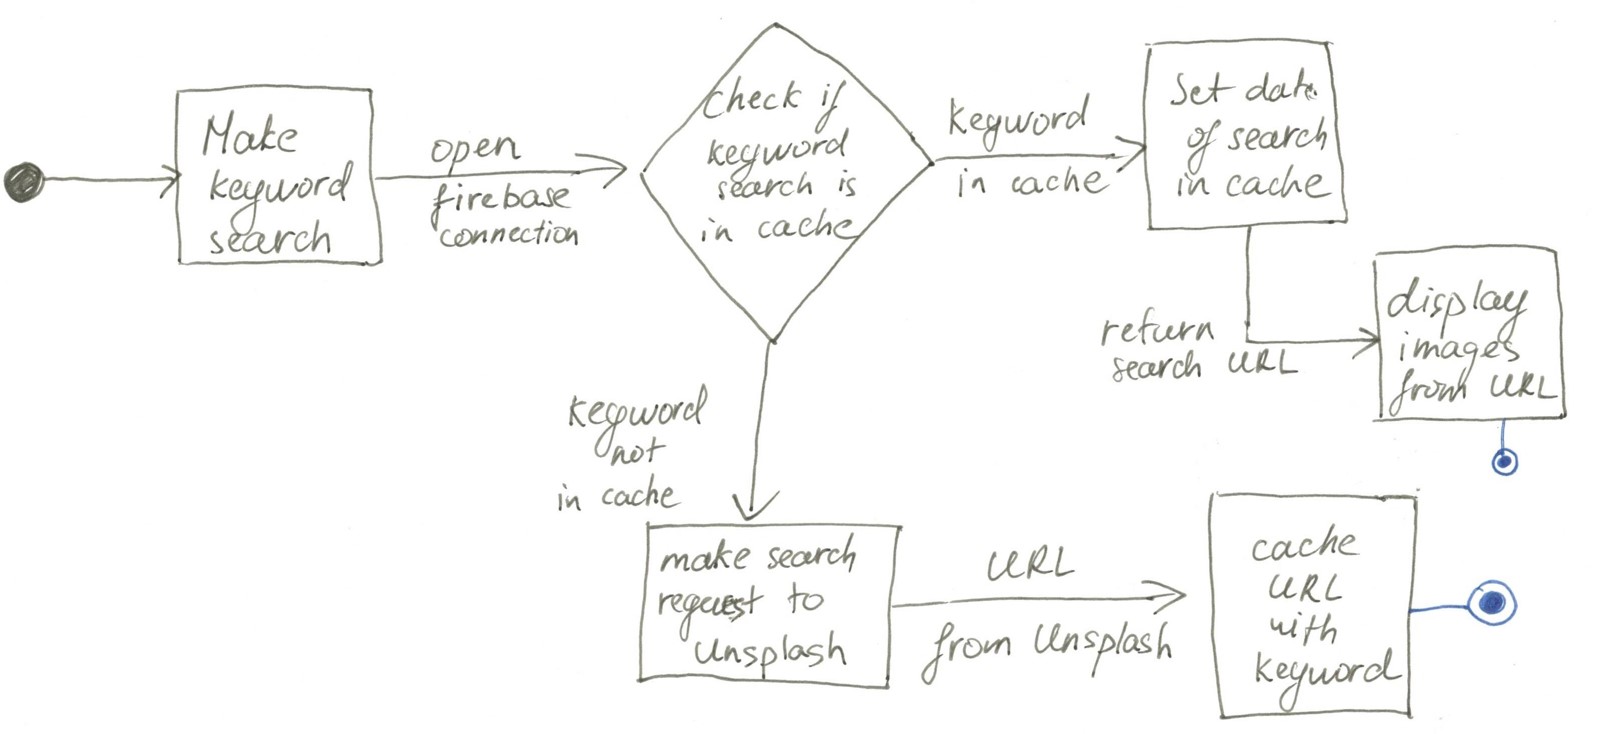 Make
keyword
search
open
firebase
connection
check if
keyword
search is
in cache
keyword
in cache
Set date
of search
in cache
return
search URL
display
images
from URL
keyword
not
in cache
make search
request to
Unsplash
URL
from Unsplash
cache
URL
with
keyword